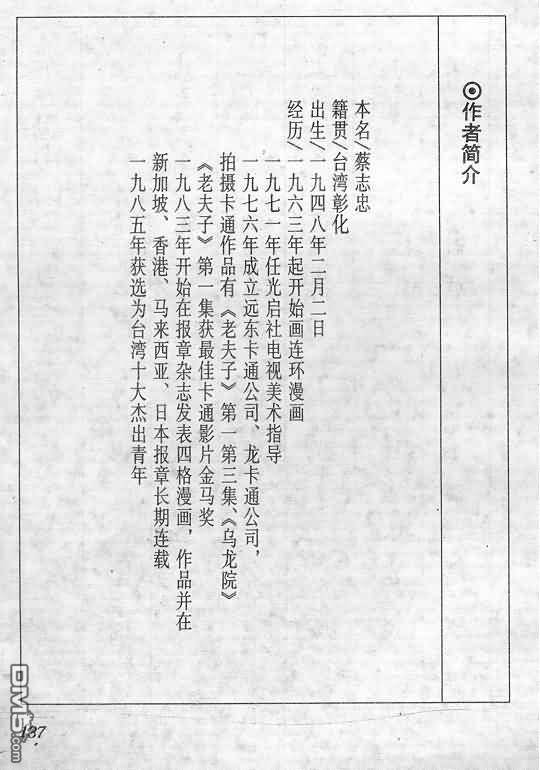 ⊙作者简介
本名/蔡志忠
籍贯/台湾彰化
出生/一九四八年二月二日
经历/一九六三年起开始画连环漫画
一九七一年任光启社电视美术指导
一九七六年成立远东卡通公司、龙卡通公司，
拍摄卡通作品有《老夫子》第一第三集、《乌龙院》
《老夫子》第一集获最佳卡通影片金马奖
一九八三年开始在报章杂志发表四格漫画，作品并在
新加坡、香港、马来西亚、日本报章长期连载
一九八五年获选为台湾十大杰出青年
137
DM5.com